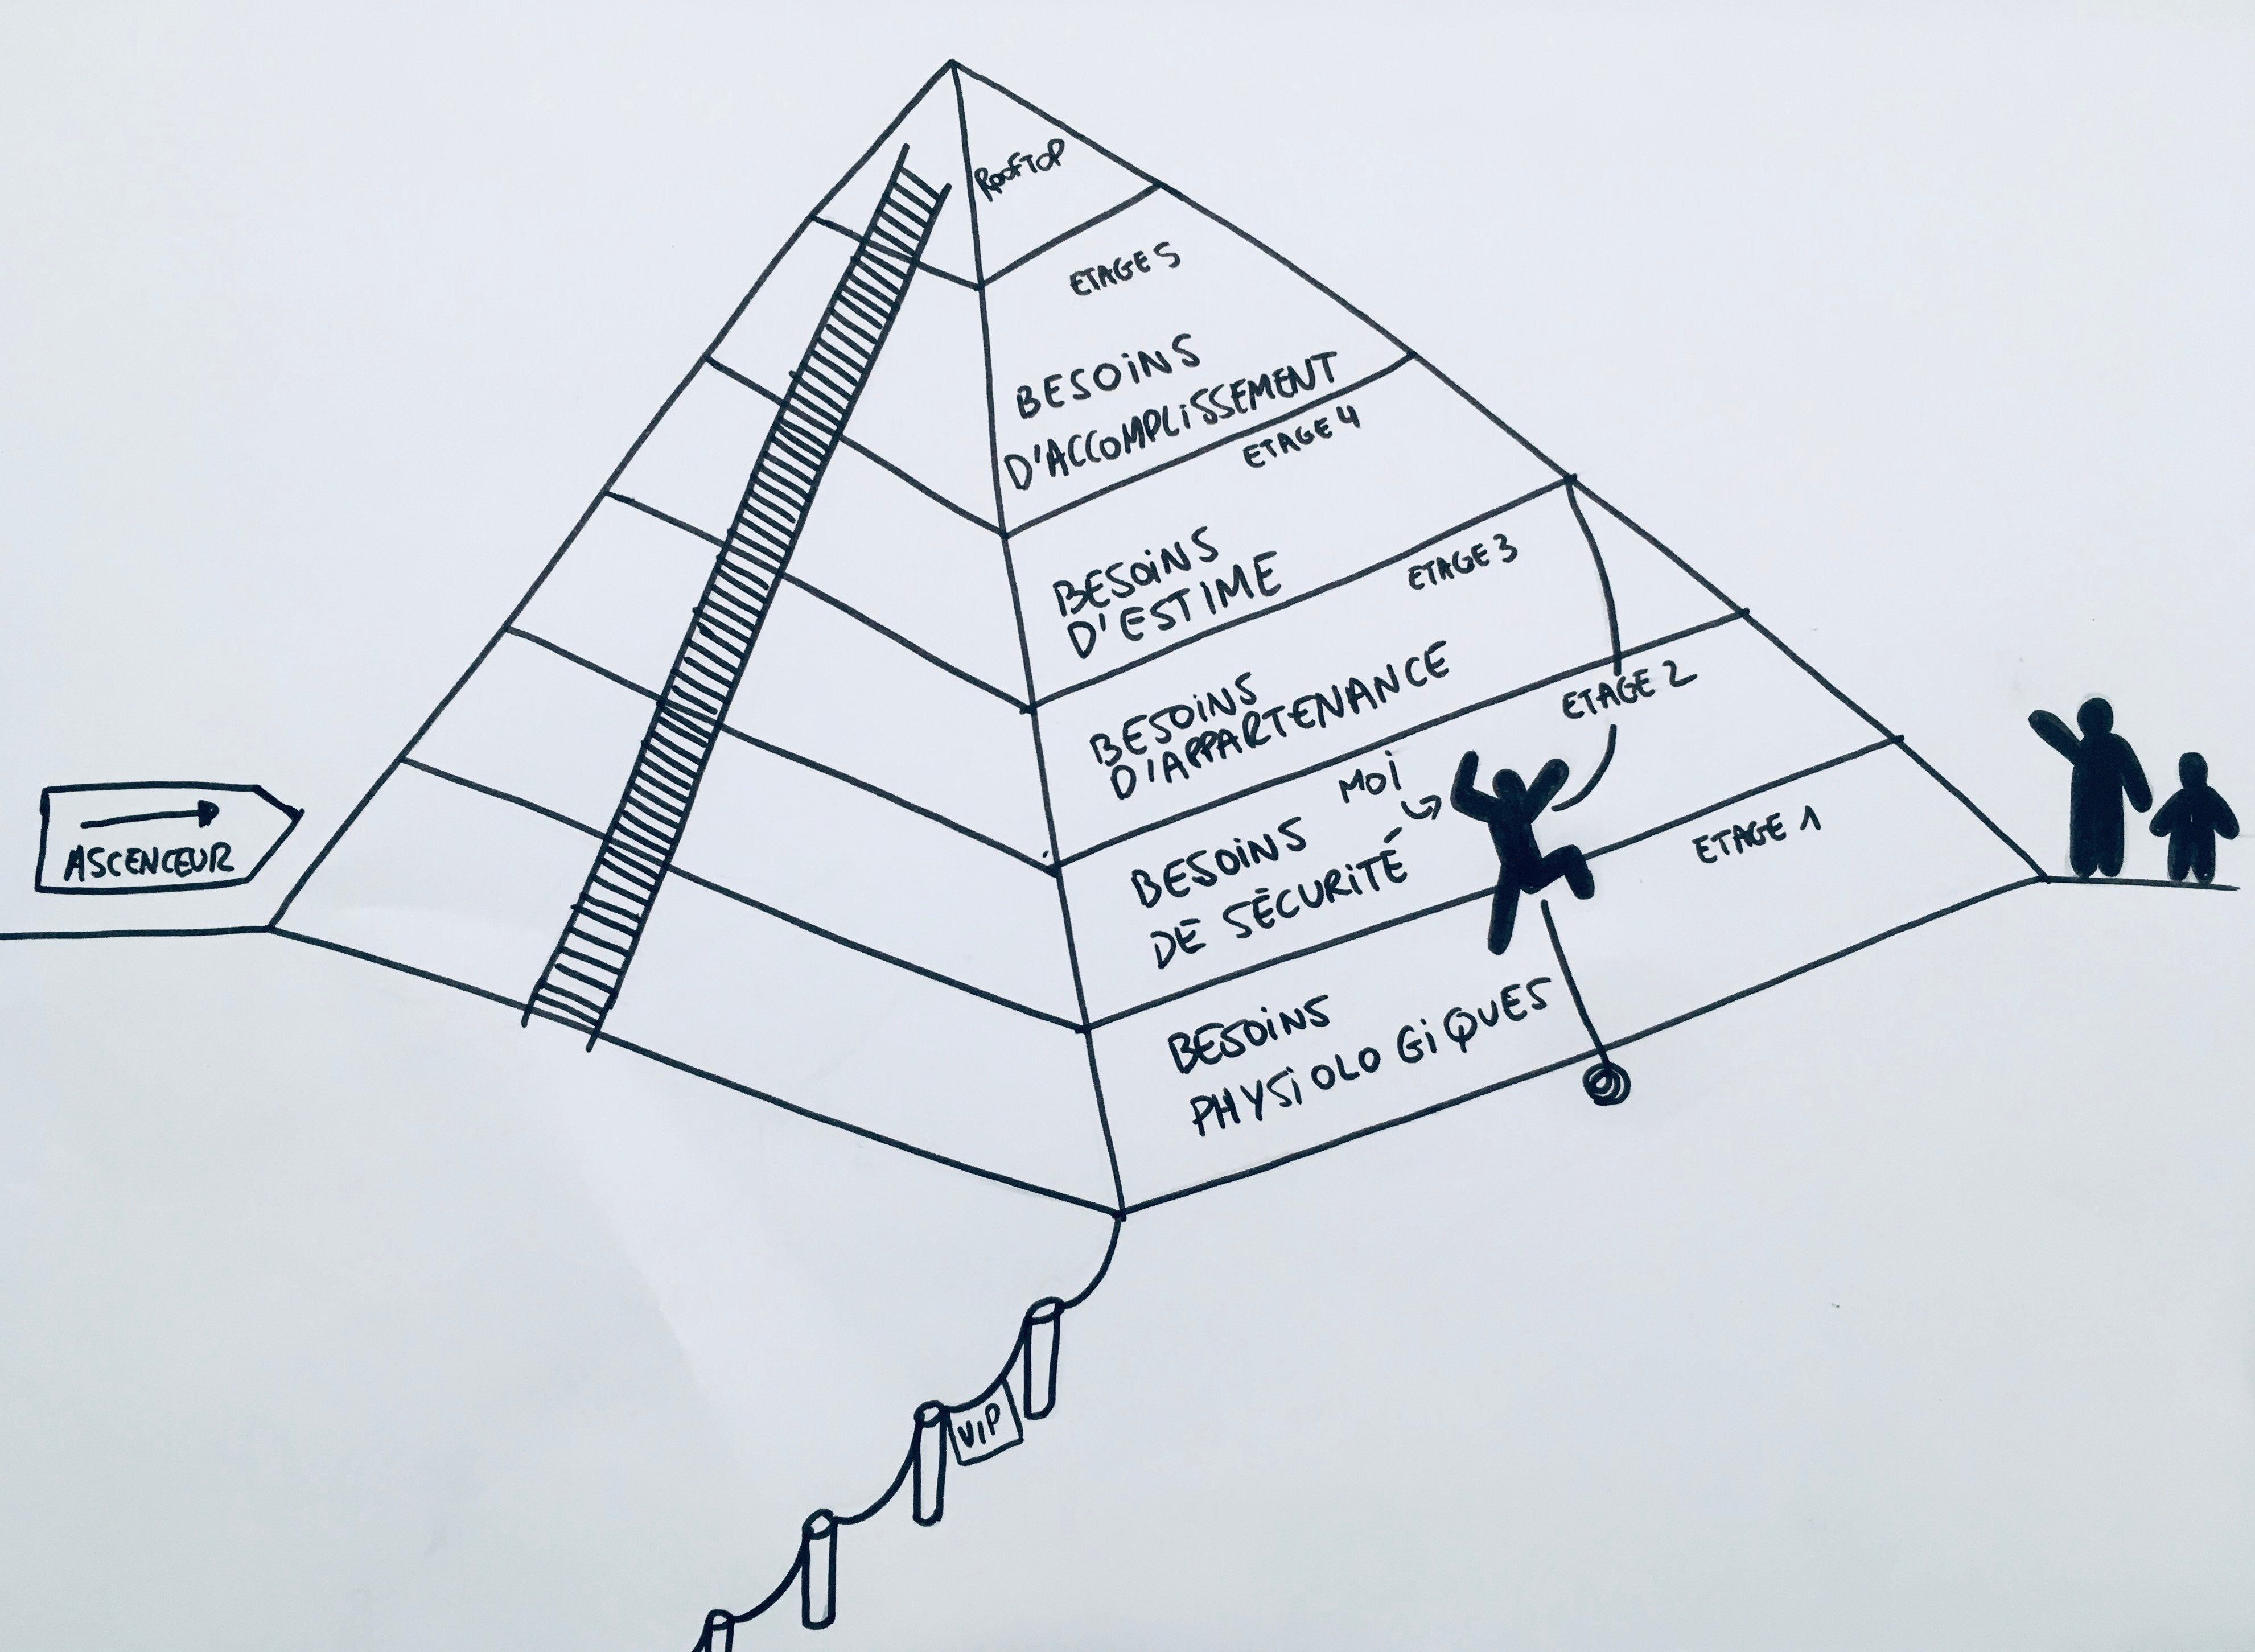 ROOFTOP
ETAGE 5
BESOINS
D'ACCOMPLISSEMENT
ETAGE 4
BESOINS
D'ESTIME
ETAGE 3
BESOINS
D'APPARTENANCE
ETAGE 2
MOI
BESOINS
DE SÉCURITÉ
ETAGE 1
BESOINS
PHYSIOLOGIQUES
ASCENCEUR
VIP